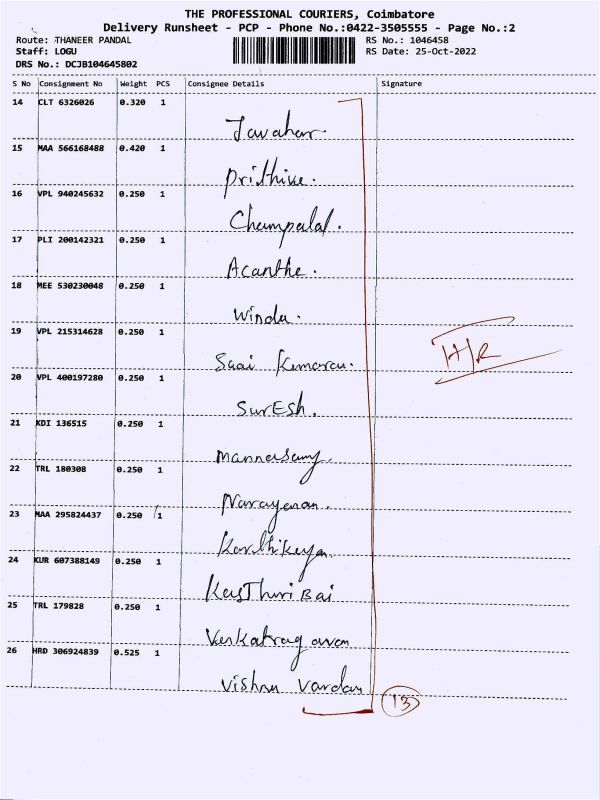 THE PROFESSIONAL COURIERS, Coimbatore
Delivery Runsheet - PCP - Phone No.:0422-3505555 - Page No.:2
Route: THANEER PANDAL RS No.: 1046458
Staff: LOGU RS Date: 25-Oct-2022
DRS No.: DCJB104645802
S No Consignment No Weight PCS Consignee Details Signature
14 CLT 6326026 0.320 1
Javahar.
15 MAA 566168488 0.420 1
Prithive.
16 VPL 940245632 0.250 1
Champalal.
17 PLI 200142321 0.250 1
Acanthe.
18 MEE 530230048 0.250 1
Windu.
19 VPL 215314628 0.250 1
H/R
Saai Kumaran.
20 VPL 400197280 0.250 1
SurEsh.
21 KDI 136515 0.250 1
Mannersamy
22 TRL 180308 0.250 1
Narayanan.
23 MAA 295824437 0.250 1
Karthikeyan
24 KUR 607388149 0.250 1
KasThuri Bai
25 TRL 179828 0.250 1
Venkatragavan
26 HRD 306924839 0.525 1
Vishnu Vardan
13